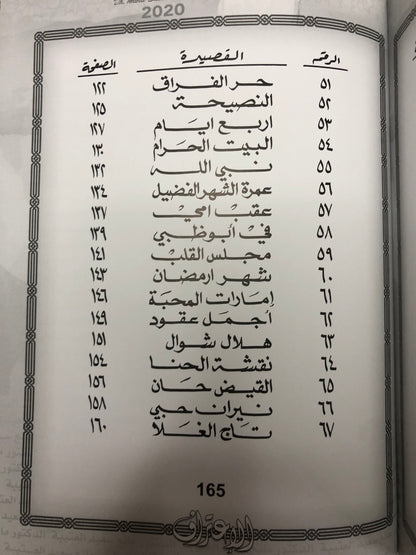 2020
الرقم القصيدة الصفحة
٥١ حر الفراق ١٢٢
٥٢ النصيحة ١٢٥
٥٣ اربع ايام ١٢٧
٥٤ البيت الحرام ١٣٠
٥٥ نبي الله ١٣٢
٥٦ عمرة الشهر الفضيل ١٣٤
٥٧ عقب امحي ١٣٧
٥٨ في أبوظبي ١٣٩
٥٩ مجلس القلب ١٤١
٦٠ شهر ارمضان ١٤٣
٦١ إمارات المحبة ١٤٦
٦٢ أجمل عقود ١٤٩
٦٣ هلال شوال ١٥١
٦٤ نقشة الحنا ١٥٤
٦٥ القيض حان ١٥٦
٦٦ نيران حبي ١٥٨
٦٧ تاج الغلا ١٦٠
165